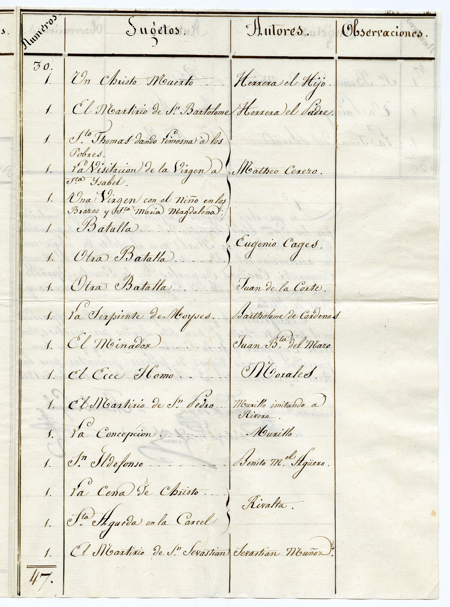 s.
Numeros
Sugetos.
Autores.
Observaciones.
30.
1. Un Christo Muerto Herrera el Hijo.
1. El Martirio de Sn. Bartolome Herrera el Padre.
1. Sto. Thomas dando Limosna a los
Pobres.
1. La Visitacion de la Virgen a
Sta Ysabel.
Mattheo Cerezo.
1. Una Virgen con el Niño en los
Brazos y Sta Maria Magdalena.
1. Batalla
Eugenio Cages.
1. Otra Batalla
1. Otra Batalla Juan de la Corte.
1. La Serpiente de Moyses. Bartholome de Cardenas
1. El Minador Juan Bta. del Mazo
1. El Ecce Homo Morales.
1. El Martirio de Sn. Pedro Murillo imitando a
Rivera.
1. La Concepcion Murillo
1. Sn Ildefonso Benito Mel. Agüero.
1. La Cena de Christo
Rivalta.
1. Sta Agueda en la Carcel
1. El Martirio de Sn. Sevastian Sevastian Muñoz.
47.